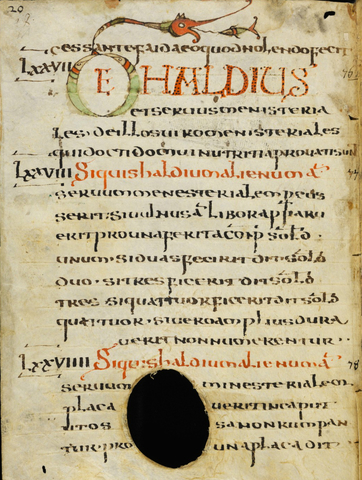 20
cessante faida eo quod nolendo fecit
LXXVII DE HALDIUS 76
et servius menisteria
les de illos viro menisteriales
qui docti domui nutriti aprovati sun
LXXVIII Si quis haldium alienum a 77
servum menesterialem percus
serit · si vulnus a libor apparu
erit pro una ferita conp sold
unum · si duas fecirit dit · sold
duo · si tres ficerit dit · sold
tres · si quattuor ficerit dit · sold
quattuor · si vero amplius dura
verit non numerentur
LXXVIIII Si quis haldium alienum a 78
servum ministerialem
placa verit in caput
vitos sa non rumpan
tur · pro una placa dit ·